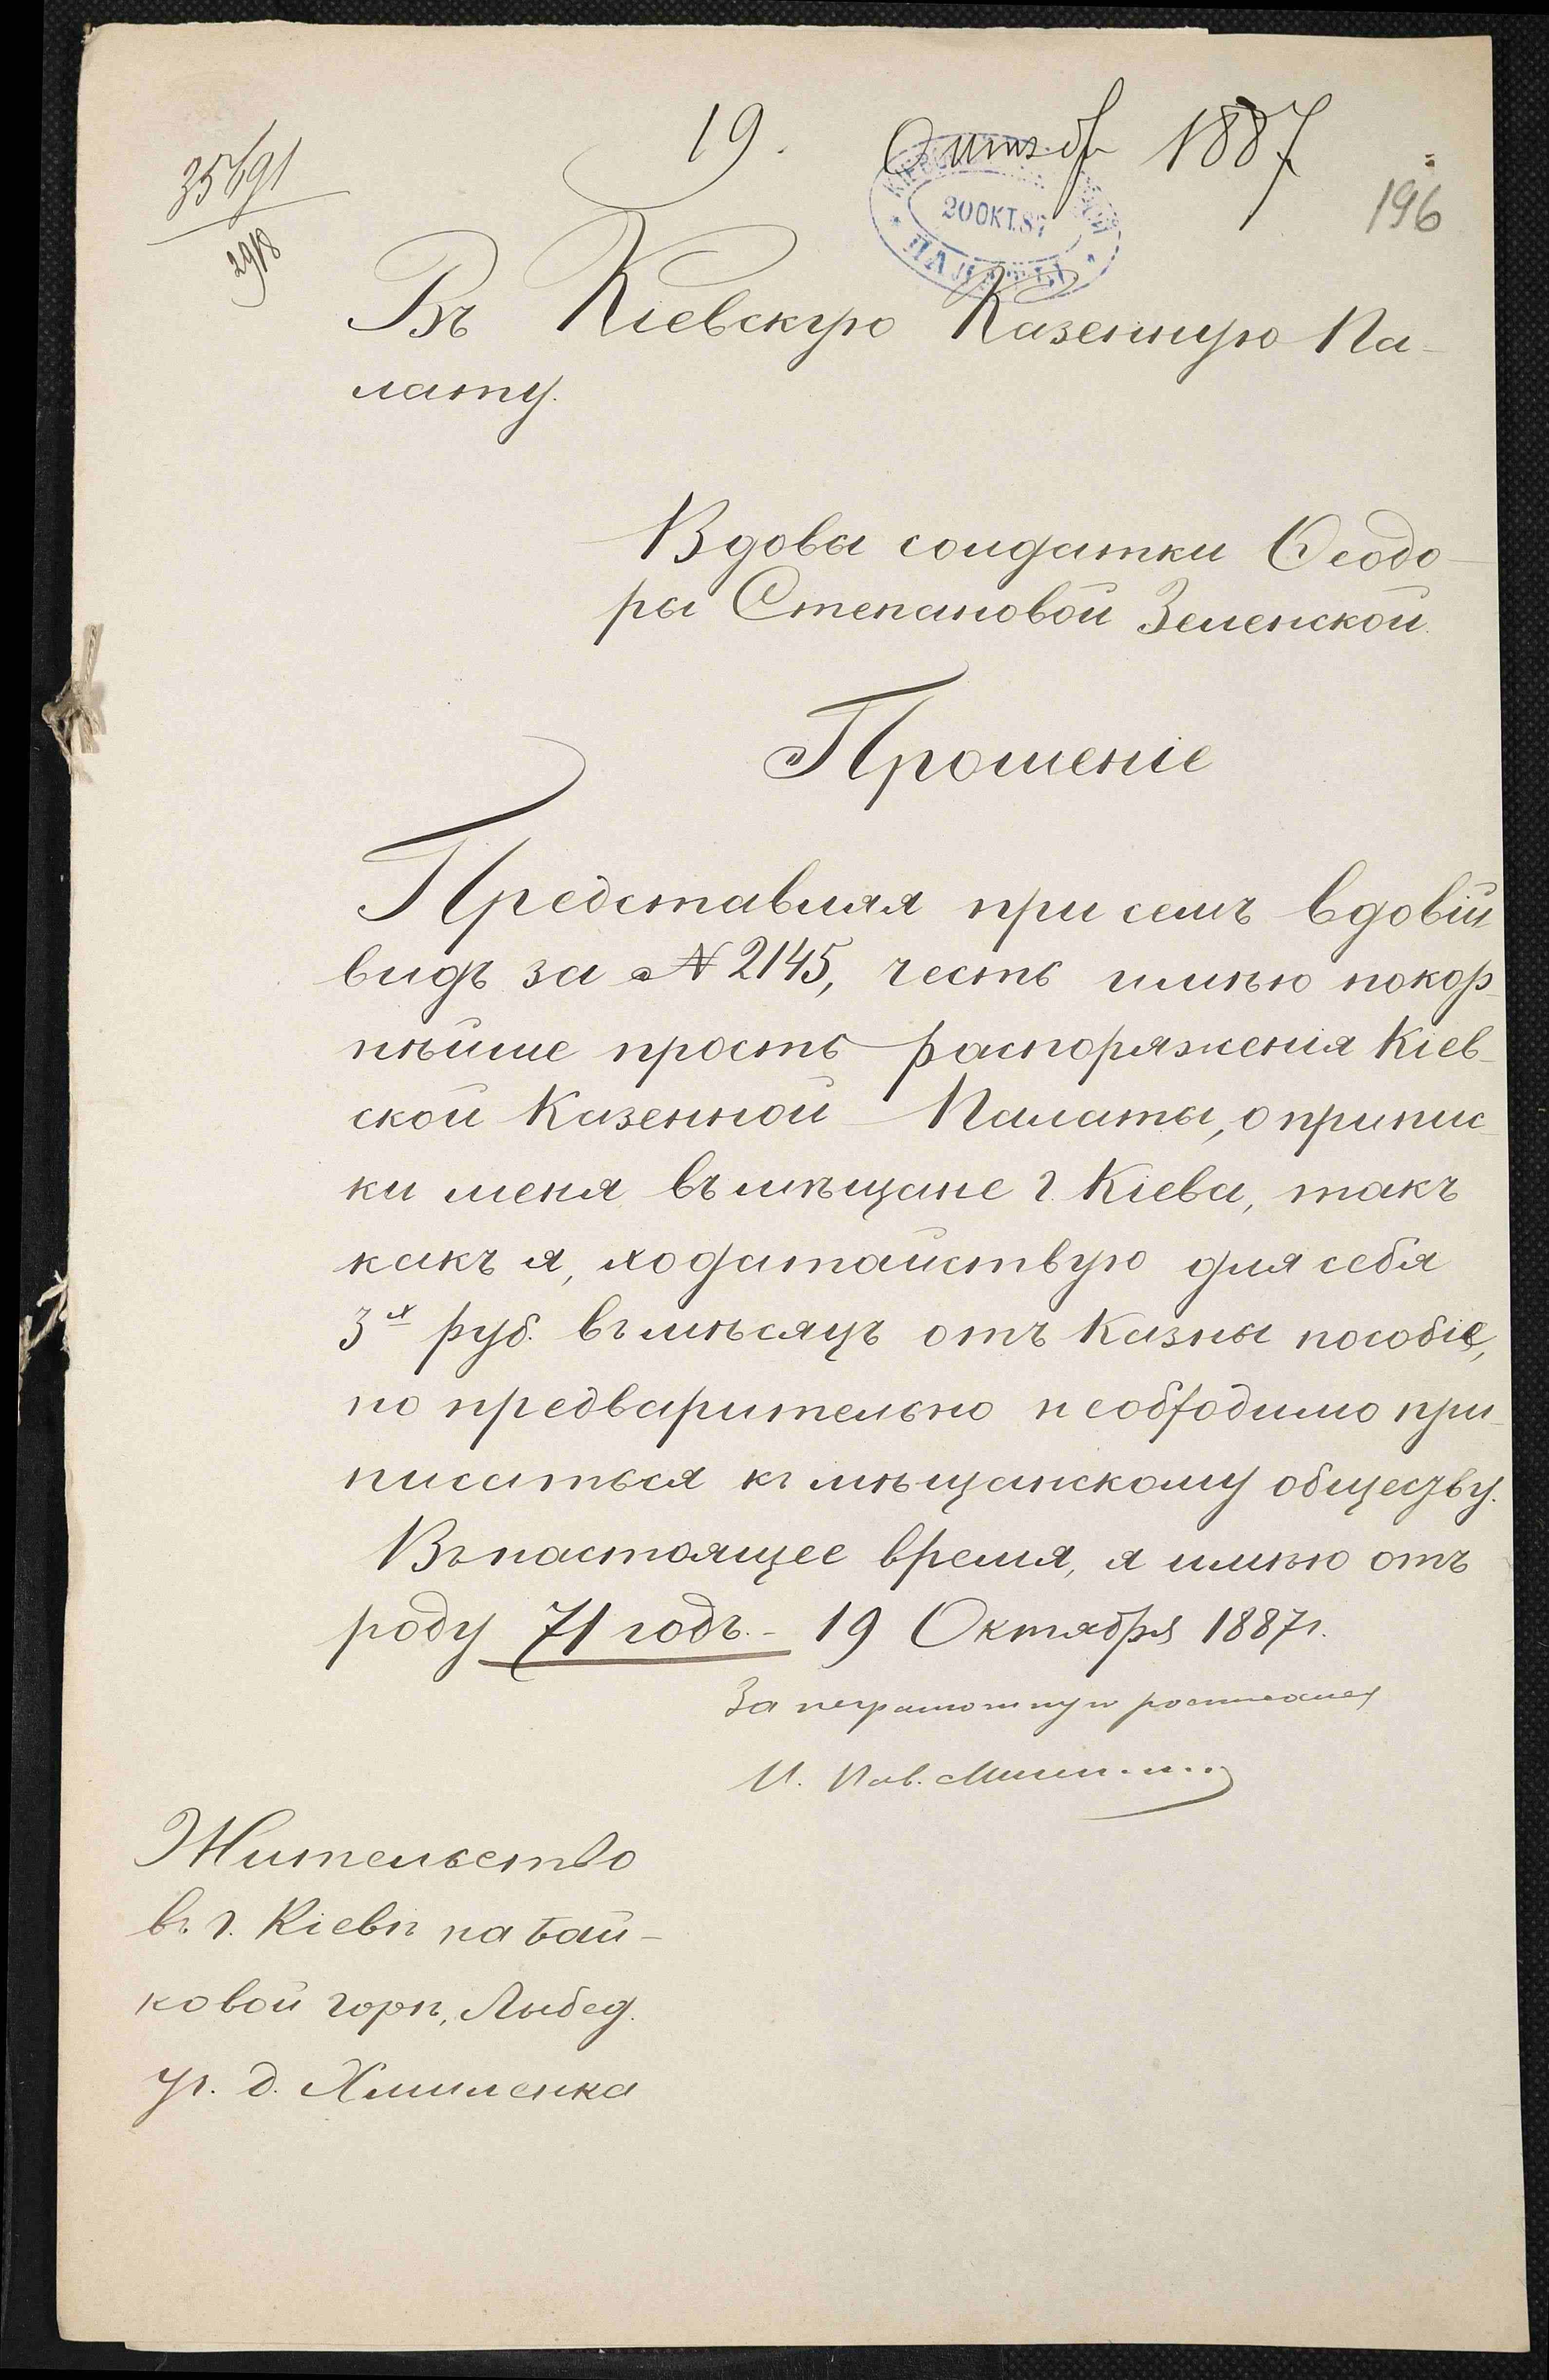 19. Октяб 1887
35691
2918
196
20 ОКТ. 87
ПАЛАТЫ
Въ Кіевскую Казенную Па-
лату.
Вдовы солдатки Ѳеодо-
ры Степановой Зеленской.
Прошеніе
Представляя при семъ вдовій
видъ за № 2145, честь имѣю покор-
нѣйше прость распоряженія Кіев-
ской Казенной Палаты, о припис-
ки меня въ мѣщане г. Кіева, такъ
какъ я, ходатайствую для себя
3х руб. въ мѣсяцъ отъ Казны пособіе,
но предварительно необходимо при-
писаться къ мѣщанскому обществу.
Въ настоящее время, я имѣю отъ
роду 71 годъ. - 19 Октября 1887 г.
За неграмотную росписался
И. Пав.
Жительство
въ г. Кіевѣ на Бай-
ковой горѣ, Лыбед.
уч. д. Хмиленка